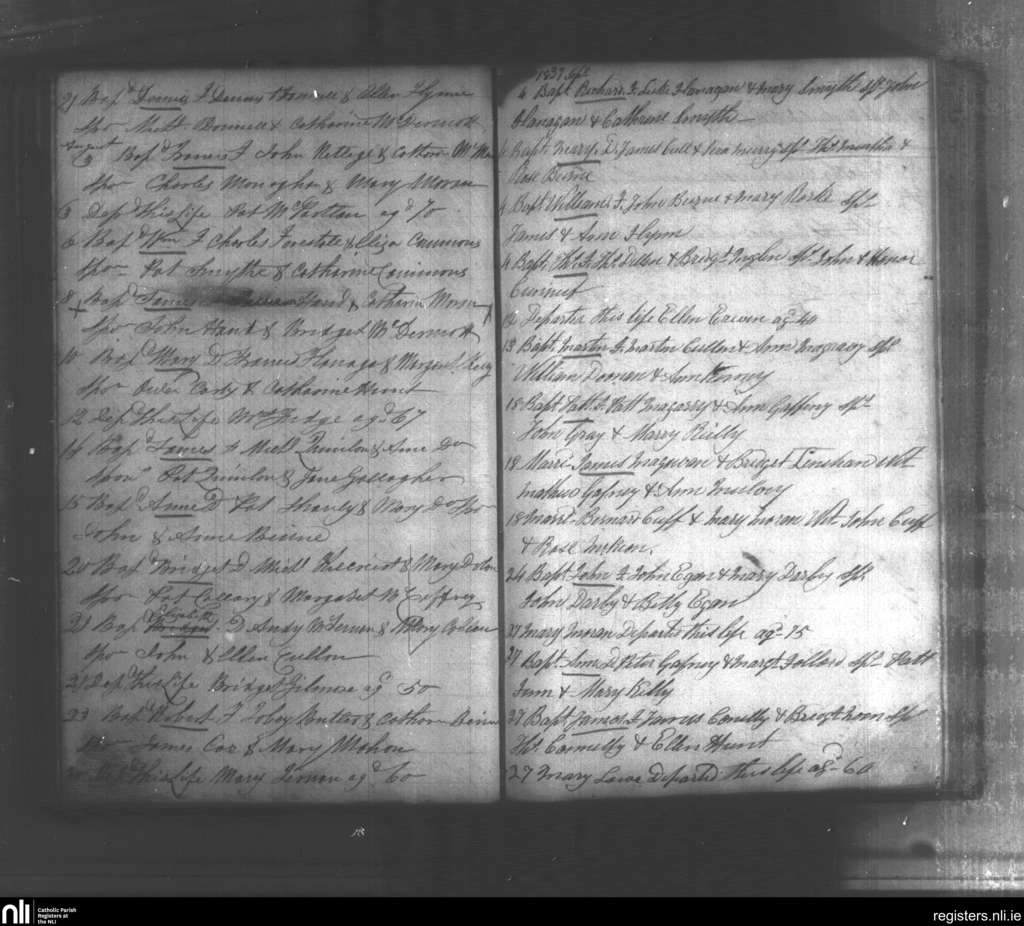 21 Bapd James F Dennis Bonnell & Ellen Flynn
Spo Michl Bonnell & Catharine McDermott
August
3 Bapd Francis F John Kettege & Cathrn McMa
Spo Charles Monaghan & Mary Moran
3 Depd this Life Pat McPartlan agd 70
6 Bapd Wm F Charles Forestate & Eliza Commons
Spo Pat Smythe & Catharine Commons
8 Bapd James Hand & Catharin Moran
Spo John Hand & Bridget McDermott
10 Bapd Mary D Francis Flanaga & Margaret
Spo Owen Carty & Catharine Hunt
12 Depd this Life Wm Fedge agd 67
14 Bapd James F Michl Quinlon & Anne Do
Spon Pat Quinlon & Jane Gallagher
15 Bapd Anne D Pat & Mary Do Spo
John & Anne Beirne
20 Bapd Bridget D Michl & Mary Dolan
Spo Pat Callary & Margaret McCaffrey
21 Bap Elizabeth D Andy McTernan & Mary
Spo John & Ellen Cullon
21 Depd this Life Bridget Gilmore agd 50
23 Bapd Robert F Tobey Butler & Cathrn Beirne
Spo James Cox & Mary Mahon
Depd this Life Mary Ternan agd 60
1837 Sept
4 Bapt Richard F Luke Flanagan & Mary Smyth Sps John
Flanagan & Cathrine Smyth
4 Bapt Mary D James Cull & Murry Sps Thos Murtha &
Rose Burne
4 Bapt William F John Burne & Mary Rorke Sps
James & Ann Flynn
4 Bapt Thos F Thos Dillon & Bridgt Sps John & Honor
12 Departed this life Ellen Erwin ag 40
13 Bapt Martin F Martin Cullen & Ann Magravy Sps
William Dornan & Ann
18 Bapt Patt F Patt Magarry & Ann Gaffeny Sps
John Gray & Marry Reilly
18 Marrd James Magwran & Bridget Lenehan Wt
Mathew Gafney & Ann
18 Marrd Bernard Cuff & Mary Moran Wt John Cuff
& Rose McKeon.
24 Bapt John F John Egan & Mary Darby Sps
John Darby & Betty Egan
27 Mary Moran Departed this life ag 75
27 Bapt Ann D Peter Gafney & Margt Follard Sps Patt
& Mary Killy
27 Bapt James F James Conelly & Bridgt Sps
Thos Connelly & Ellen Hunt
27 Mary Departed this life agd 60
nli
Catholic Parish
Registers at
the NLI
registers.nli.ie